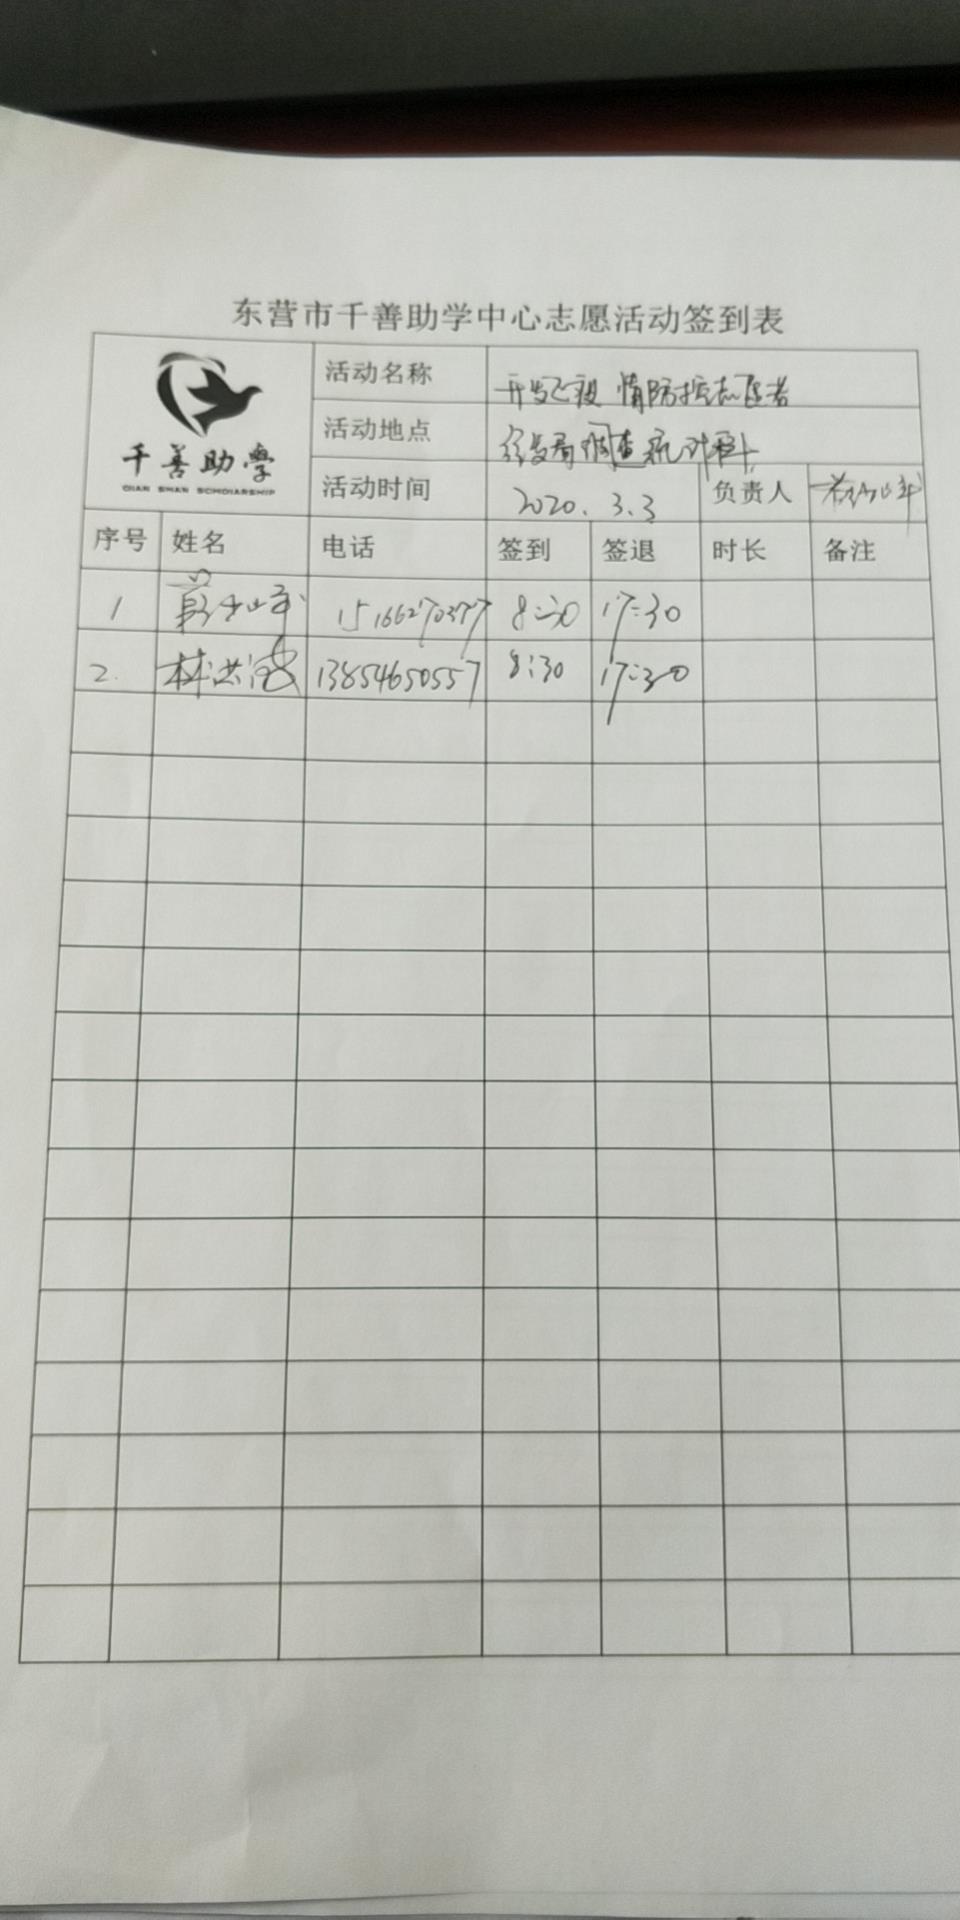 东营市千善助学中心志愿活动签到表
千善助学
QIAN SHAN SCHOLARSHIP
活动名称 开发区疫情防控志愿者
活动地点 经发局调查统计科
活动时间 2020.3.3 负责人
序号 姓名 电话 签到 签退 时长 备注
1 15166270377 8:30 17:30
2. 林洪 13854650557 8:30 17:30